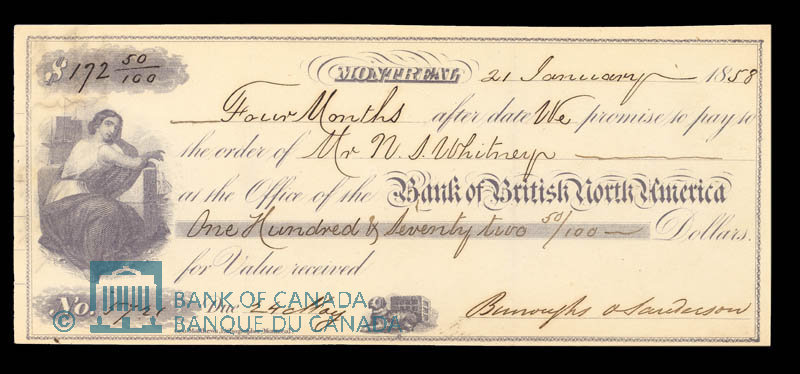 $ 172 50/100
MONTREAL 21 January 1858
Four Months after date We promise to pay to
the order of Mr N. S. Whitney
at the Office of the Bank of British North America
One Hundred & Seventy two 50/100 Dollars.
for Value received
No. Due 24 May Burroughs & Sanderson
© BANK OF CANADA
BANQUE DU CANADA